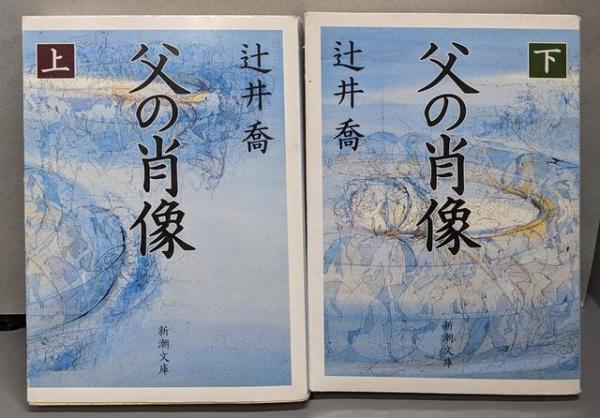 上
父の肖像
辻井喬
新潮文庫
下
父の肖像
辻井喬
新潮文庫